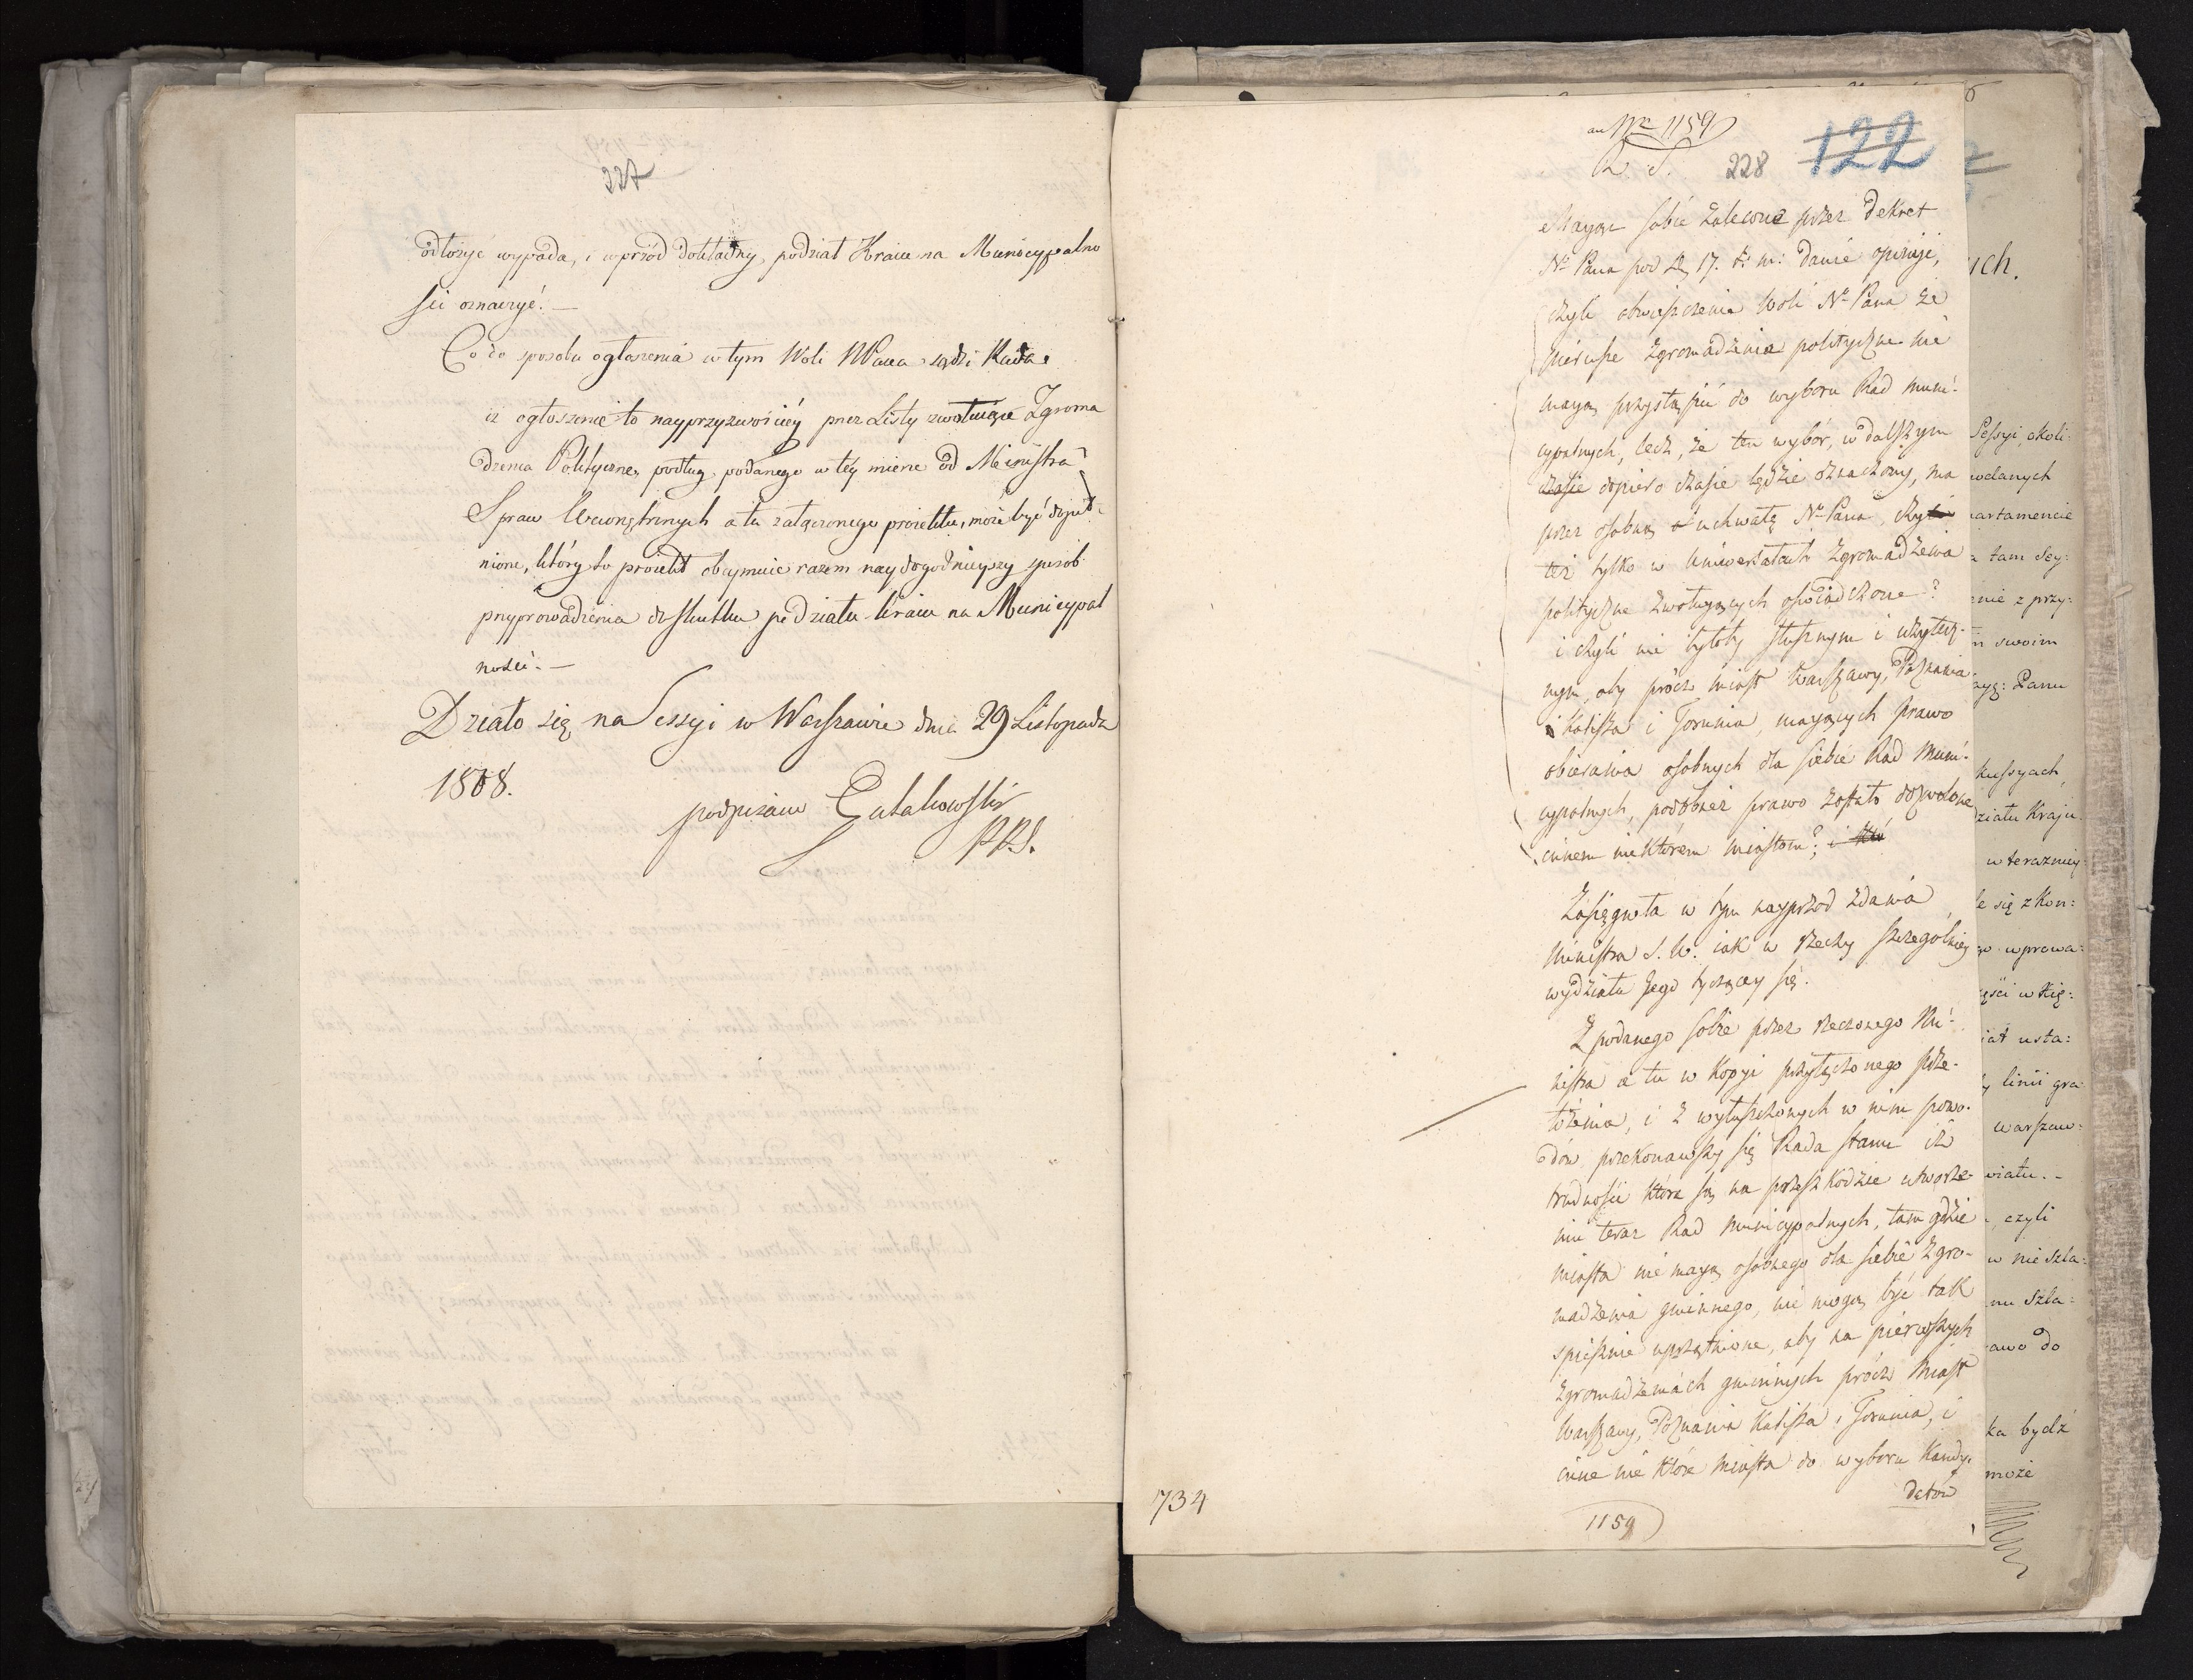 227
odłożyć wypada, i wprzód dokładny, podział Kraiu na Municypalno
ści oznaczyć. —
Co do sposobu ogłoszenia w tym Woli NPana sądzi Rada,
iż ogłoszenie to nayprzyzwoiciéy przez Listy zwołuiące Zgroma
dzenia Polityczne, podług podanego w téy mierze od Ministra
Spraw Wewnętrznych a tu załączonego proiektu, może być dopeł-
nione, który to proiekt obeymuie razem naydogodnieyszy sposób
przyprowadzenia do skutku podziału kraiu na Municypal
ności. —
Działo się na Sessyi w Warszawie dnia 29 Listopada
1808.
podpisano Gutakowski
P.R.S.
ad Nr 1159
R. S.
228
122
Maiąc sobie zalecone przez Dekret
N. Pana pod d. 17. t: m: danie opinije,
czyli obwieszczenie woli N. Pana że
pierwsze zgromadzenia polityczne nie
mają przystąpić do wyboru Rad muni-
cypalnych, lecz, że ten wybór, w dalszym
czasie dopiero czasie będzie oznaczony, ma
przez osobną uchwałę N. Pana, czy
też tylko w Uniwersałach zgromadzenia
polityczne zwołujących oświadczone?
i czyli nie byłoby słusznym i użytecz-
nym, aby prócz miast Warszawy, Poznania
i Kalisza i Torunia, mających prawo
obierania osobnych dla siebie Rad Muni-
cypalnych, podobnież prawo zostało dozwolone
innem niektórem miastom?
Zasięgneła w tym nayprzod zdania
Ministra S. W. iak w rzeczy szczególniey
wydziału Jego tyczącey się.
Z podanego sobie przez rzeczonego Mi-
nistra a tu w Kopyi przyłączonego prze-
łożenia, i z wyłuszczonych w nim powo-
dów przekonawszy się Rada Stanu iż
trudności które są na przeszkodzie utworze-
niu teraz Rad municypalnych, tam gdzie
miasta nie mają osobnego dla siebie zgro-
madzenia gminnego, nie mogą być tak
spiesznie uprzątnione, aby na pierwszych
zgromadzeniach gminnych prócz Miast
Warszawy, Poznania Kalisza i Torunia, i
inne nie które miasta do wyboru Kandy-
datów
734
1159
ych.
Sessyi, okoli-
wolanych
partamencie
tam Sey:
enie z przy:
m swoim
Panu
kussyach,
działu Kraju
w terazniey:
le się z Kon:
wprowa:
ęści w Xię:
iał usta:
linii gra
warszaw:
wiatu. -
, czyli
w nie szla:
mu Szla:
awo do
ka bydź
może